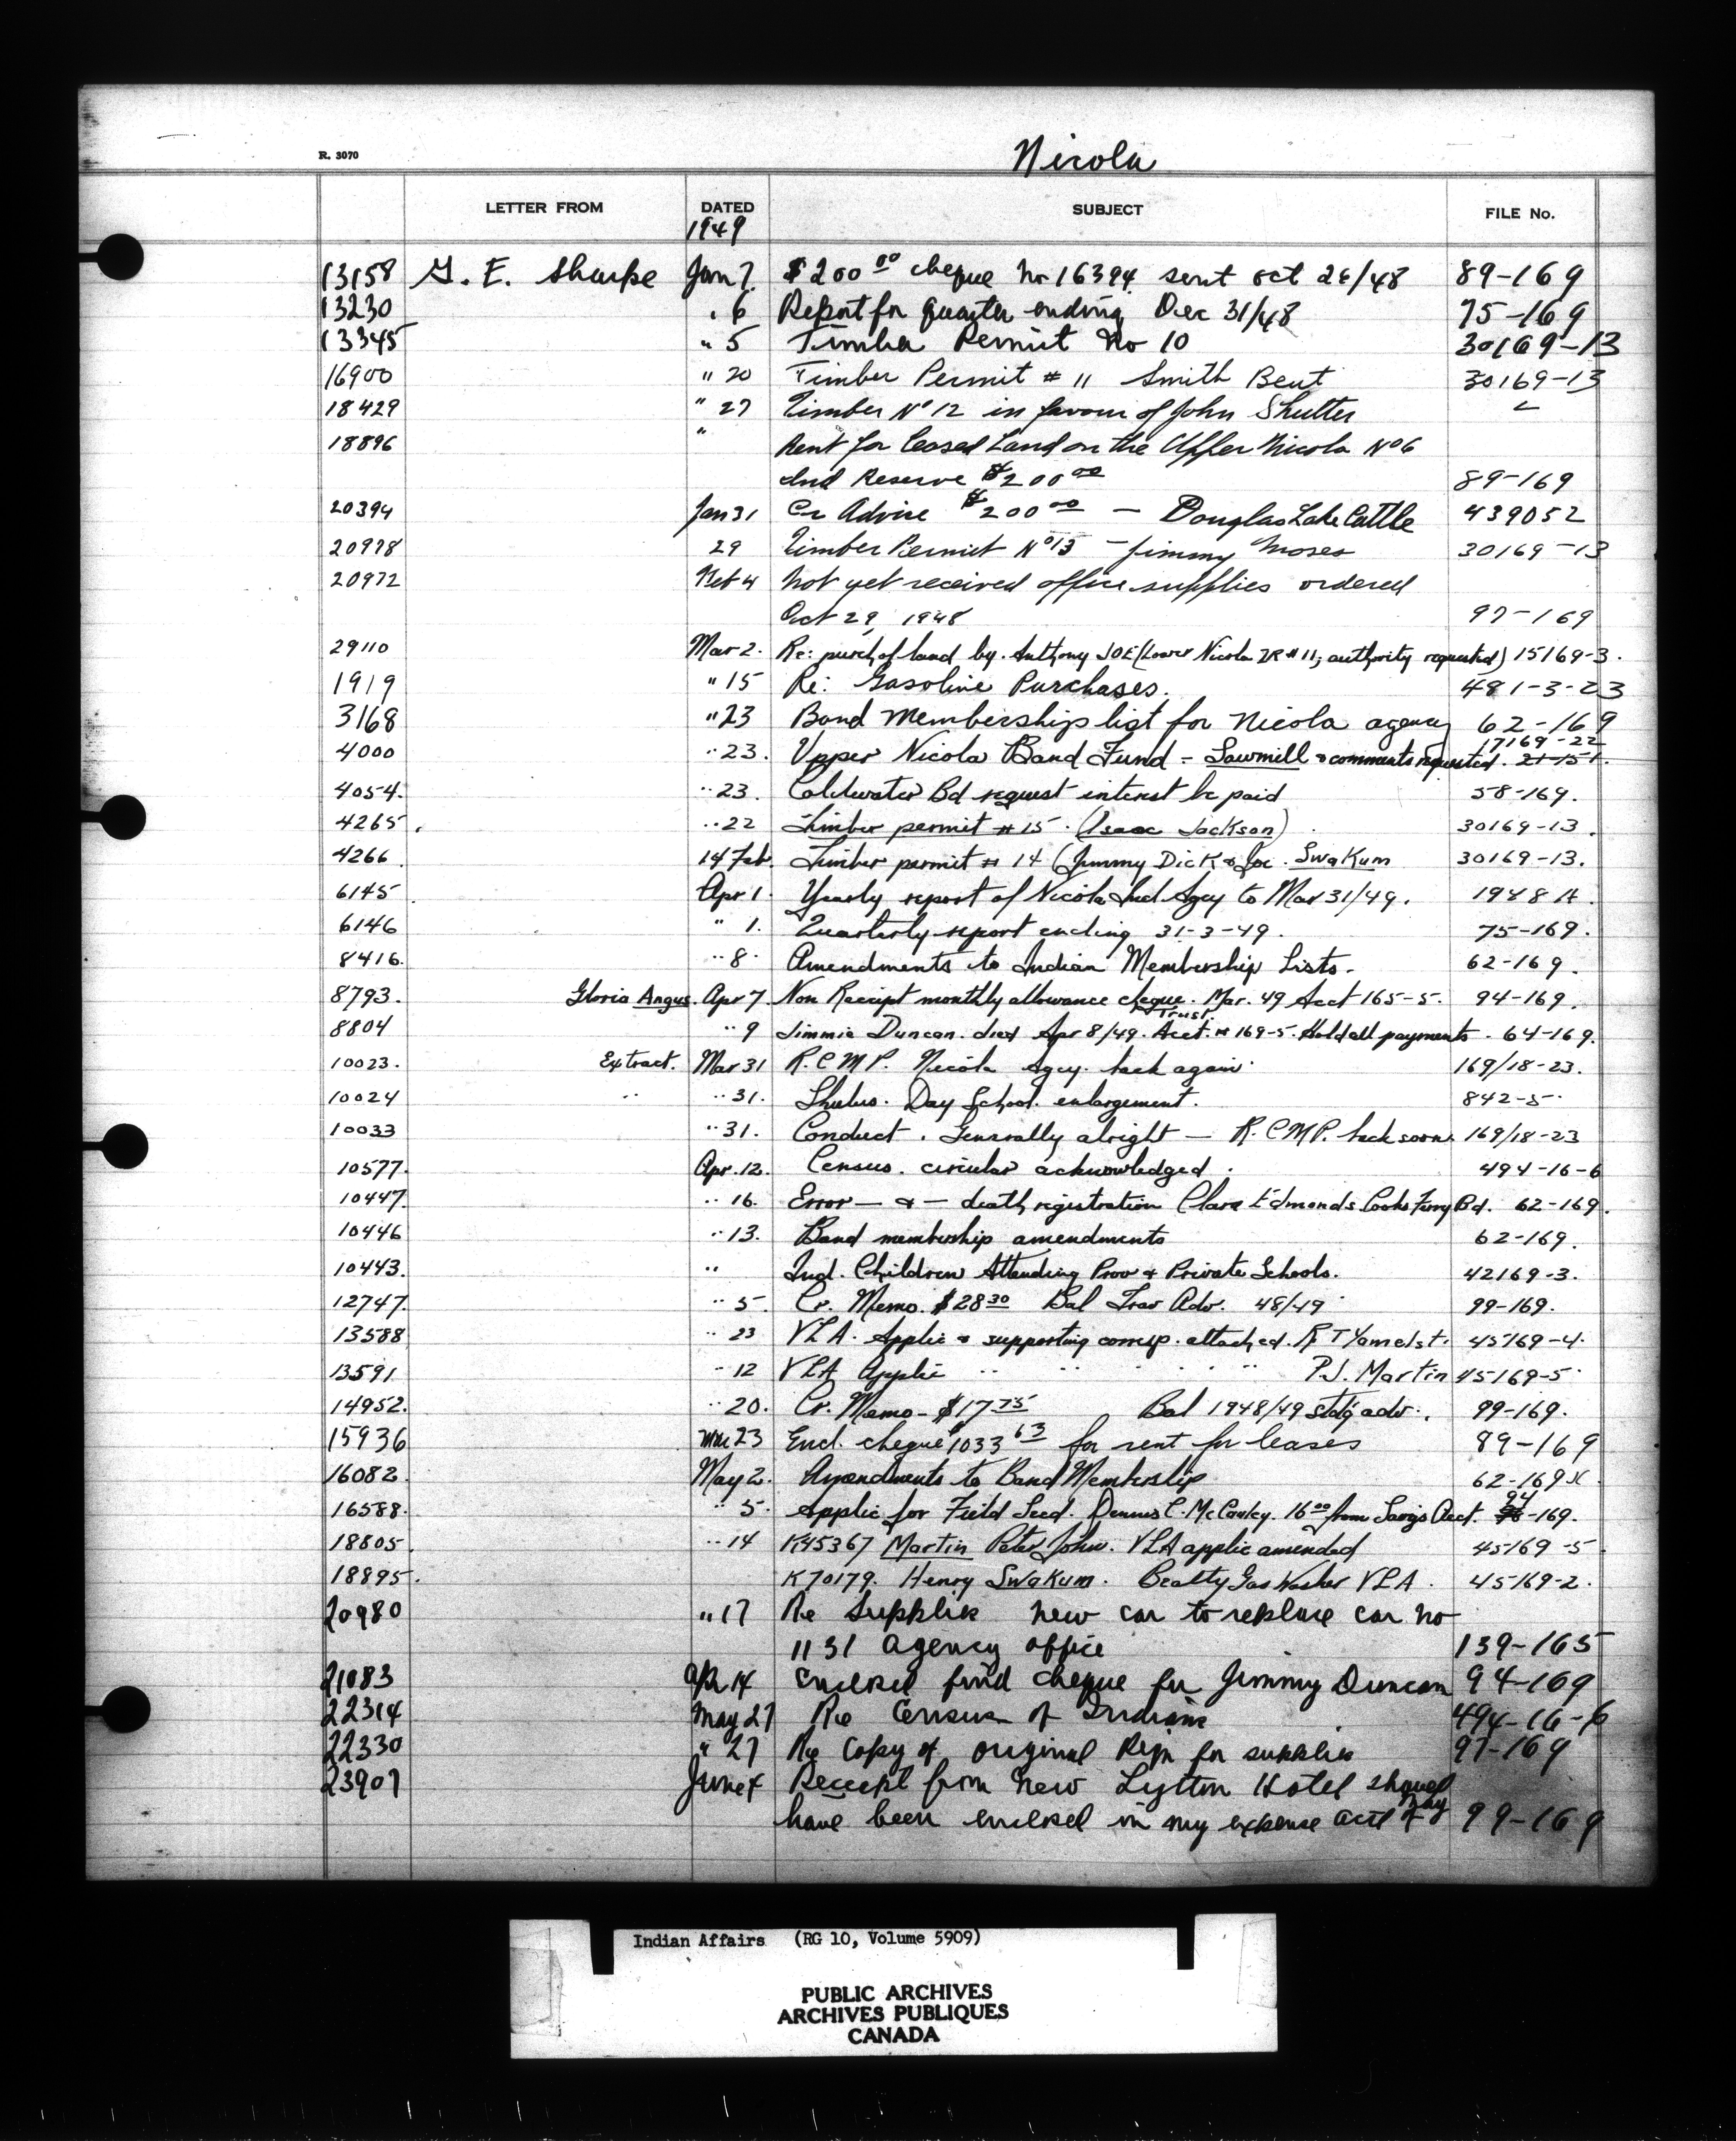 R. 3070
Nicola
LETTER FROM DATED SUBJECT FILE No.
1949
13158 G. E. Sharpe Jan 7. $200 00 cheque No 16394 sent Oct 28/48 89-169
13230 " 6 Report for quarter ending Dec 31/48 75-169
13345 " 5 Timber Permit No 10 30169-13
16900 " 20 Timber Permit # 11 Smith Bent 30169-13
18429 " 27 Timber No 12 in favour of John Shutter
18896 " Rent for leased Land on the Upper Nicola No 6
Ind Reserve $200 00 89-169
20394 Jan 31 Cr Advice $200 00 — Douglas Lake Cattle 439052
20978 29 Timber Permit No 13 - Jimmy Moses 30169-13
20972 Feb 4 Not yet received office supplies ordered
Oct 29, 1948 97-169
29110 Mar 2. Re: purch of land by Anthony JOE (Lower Nicola IR # 11, authority requested) 15169-3.
1919 " 15 Re: Gasoline Purchases. 481-3-23
3168 " 23 Band Membership list for Nicola agency 62-169
17169-22
4000 " 23. Upper Nicola Band Fund - Sawmill & comments requested. 21-151.
4054. " 23. Coldwater Bd request interest be paid 58-169.
4265. " 22 Timber permit # 15. (Isaac Jackson) 30169-13.
4266. 14 Feb. Timber permit # 14 (Jimmy Dick & Joe Swakum 30169-13.
6145 Apr 1. Yearly report of Nicola Ind. Agcy to Mar 31/49. 1988 A.
6146 " 1. Quarterly report ending 31-3-49. 75-169.
8416. " 8. Amendments to Indian Membership Lists. 62-169.
8793. Gloria Angus. Apr 7. Non Receipt monthly allowance cheque. Mar. 49 Acct 165-5. 94-169.
Trust
8804 " 9 Jimmie Duncan. died Apr 8/49. Acct. # 169-5. Hold all payments. 64-169.
10023. Extract. Mar 31 R.C.M.P. Nicola Agcy. back again. 169/18-23.
10024 " " 31. Shulus. Day School. enlargement. 842-5.
10033 " 31. Conduct. Generally alright — R.C.M.P. back soon. 169/18-23
10577. Apr. 12. Census. circular acknowledged. 494-16-6
10447. " 16. Error — & — death registration Clara Edmonds Cooks Ferry Bd. 62-169.
10446 " 13. Band membership amendments 62-169.
10443. " Ind. Children Attending Prov & Private Schools. 42169-3.
12747. " 5. Cr. Memo. $28 30 Bal Trav Adv. 48/49 99-169.
13588 " 23 VLA. Applic & supporting corresp. attached. R T Yamelst. 45169-4.
13591. " 12 VLA Applic " " " " " P.J. Martin 45169-5.
14952. " 20. Cr. Memo - $17 75 Bal 1948/49 stdg adv. 99-169.
15936 Mar 23 Encl. cheque $1033 63 for rent for leases 89-169
16082. May 2. Amendments to Band Membership 62-169 X.
94
16588. " 5. Applic for Field Seed. Dennis C. McCauley. 16 00 from Savgs Acct. -169.
18805. " 14 K45367 Martin Peter John. VLA applic amended 45169-5
18895. K70179. Henry Swakum. Beatty Gas Washer VLA. 45169-2.
20980 " 17 Re Supplies new car to replace car no
1131 agency office 139-165
21083 Apr 14 Enclosed find cheque for Jimmy Duncan 94-169
22314 May 27 Re Census of Indians 494-16-6
22330 " 27 Re Copy of original Reqn for supplies 97-169
23907 June 4 Receipt from New Lytton Hotel should
have been enclosed in my expense acct of May 99-169
Indian Affairs (RG 10, Volume 5909)
PUBLIC ARCHIVES
ARCHIVES PUBLIQUES
CANADA